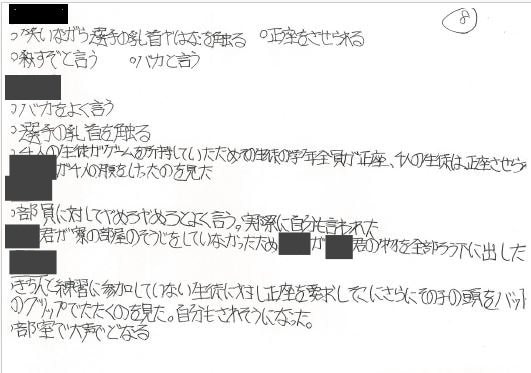 ⑧
○笑いながら選手の乳首やはなを触る ○正座をさせられる
○殺すぞと言う ○バカと言う
○バカをよく言う
○選手の乳首を触る
○4人の生徒がゲームを所持していたためその生徒の学年全員が正座、4人の生徒は、正座させら
が4人の顔をしたのを見た
○部員に対してやめろやめろとよく言う。実際に自分も言われた
君が寮の部屋のそうじをしていなかったため が 君の物を全部ろう下に出した
○きちんと練習に参加していない生徒に対し正座を要求しそこにさらにその子の頭をバット
のグリップでたたくのを見た。自分もされそうになった。
○部室で大声でどなる